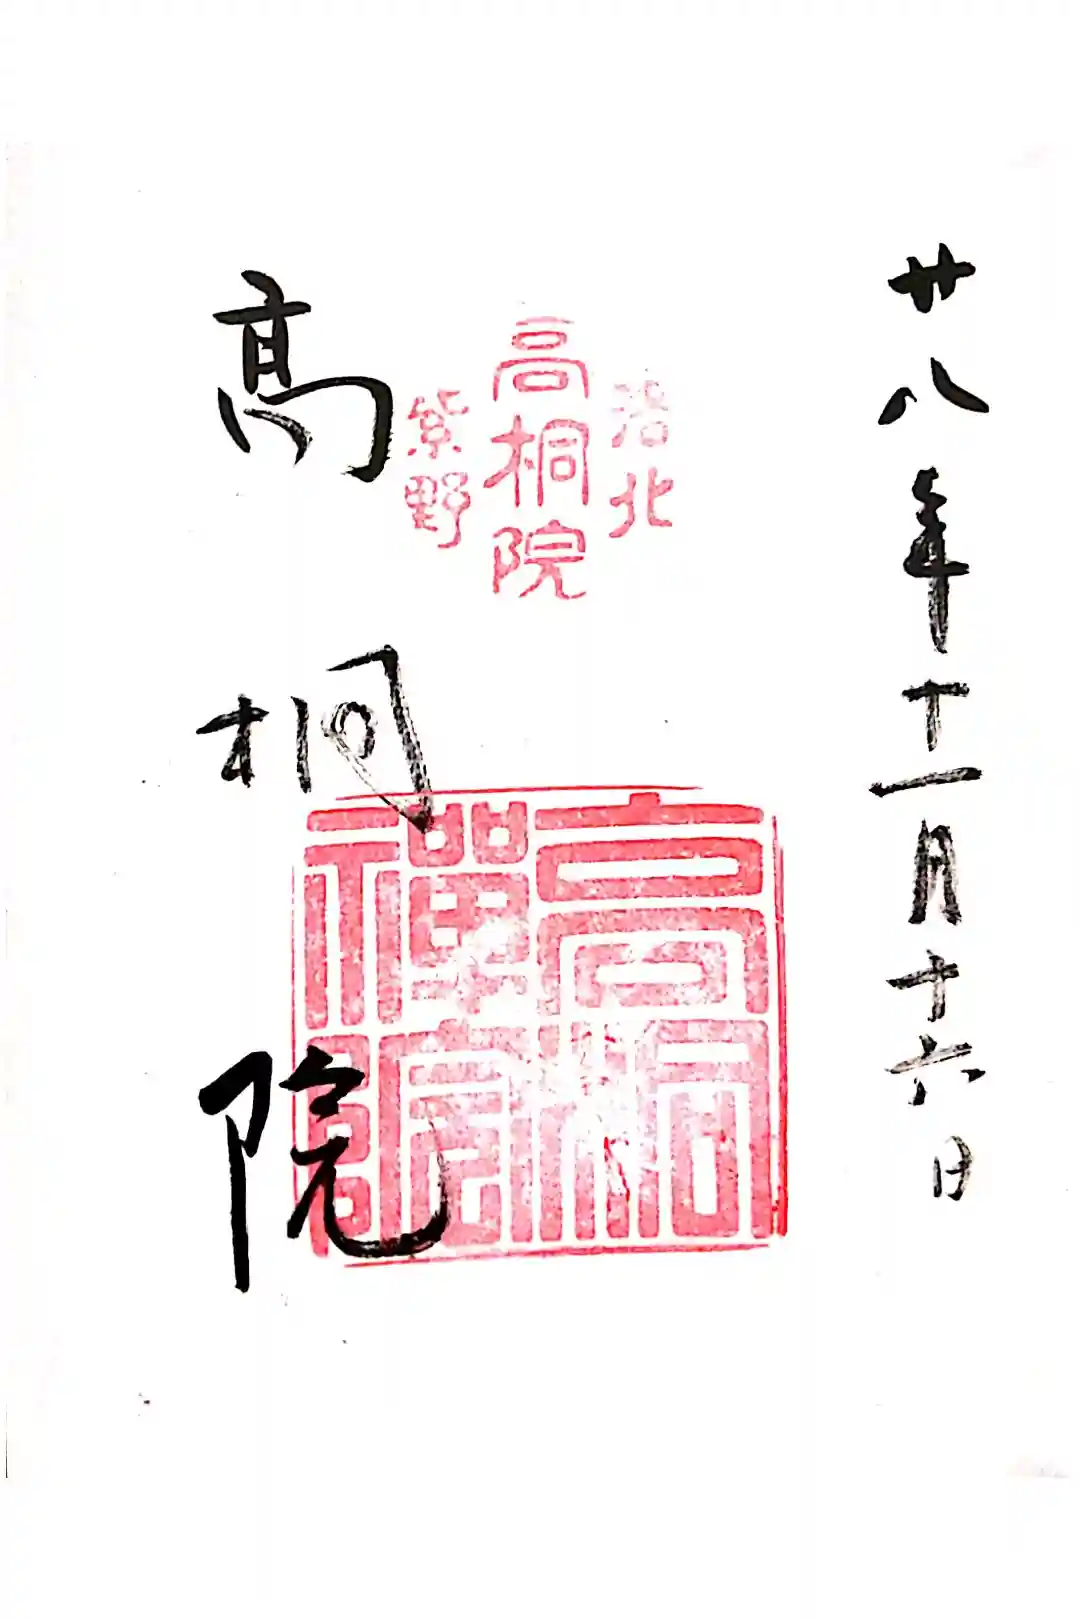 廿八年十一月十六日
洛北
高桐院
紫野
高桐禅院
高桐院